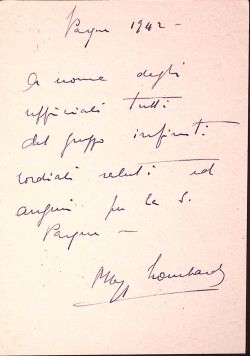 Pasqua 1942 -
A nome degli
ufficiali tutti
del gruppo infiniti
cordiali saluti ed
auguri per la S.
Pasqua -
Magg Lombardi